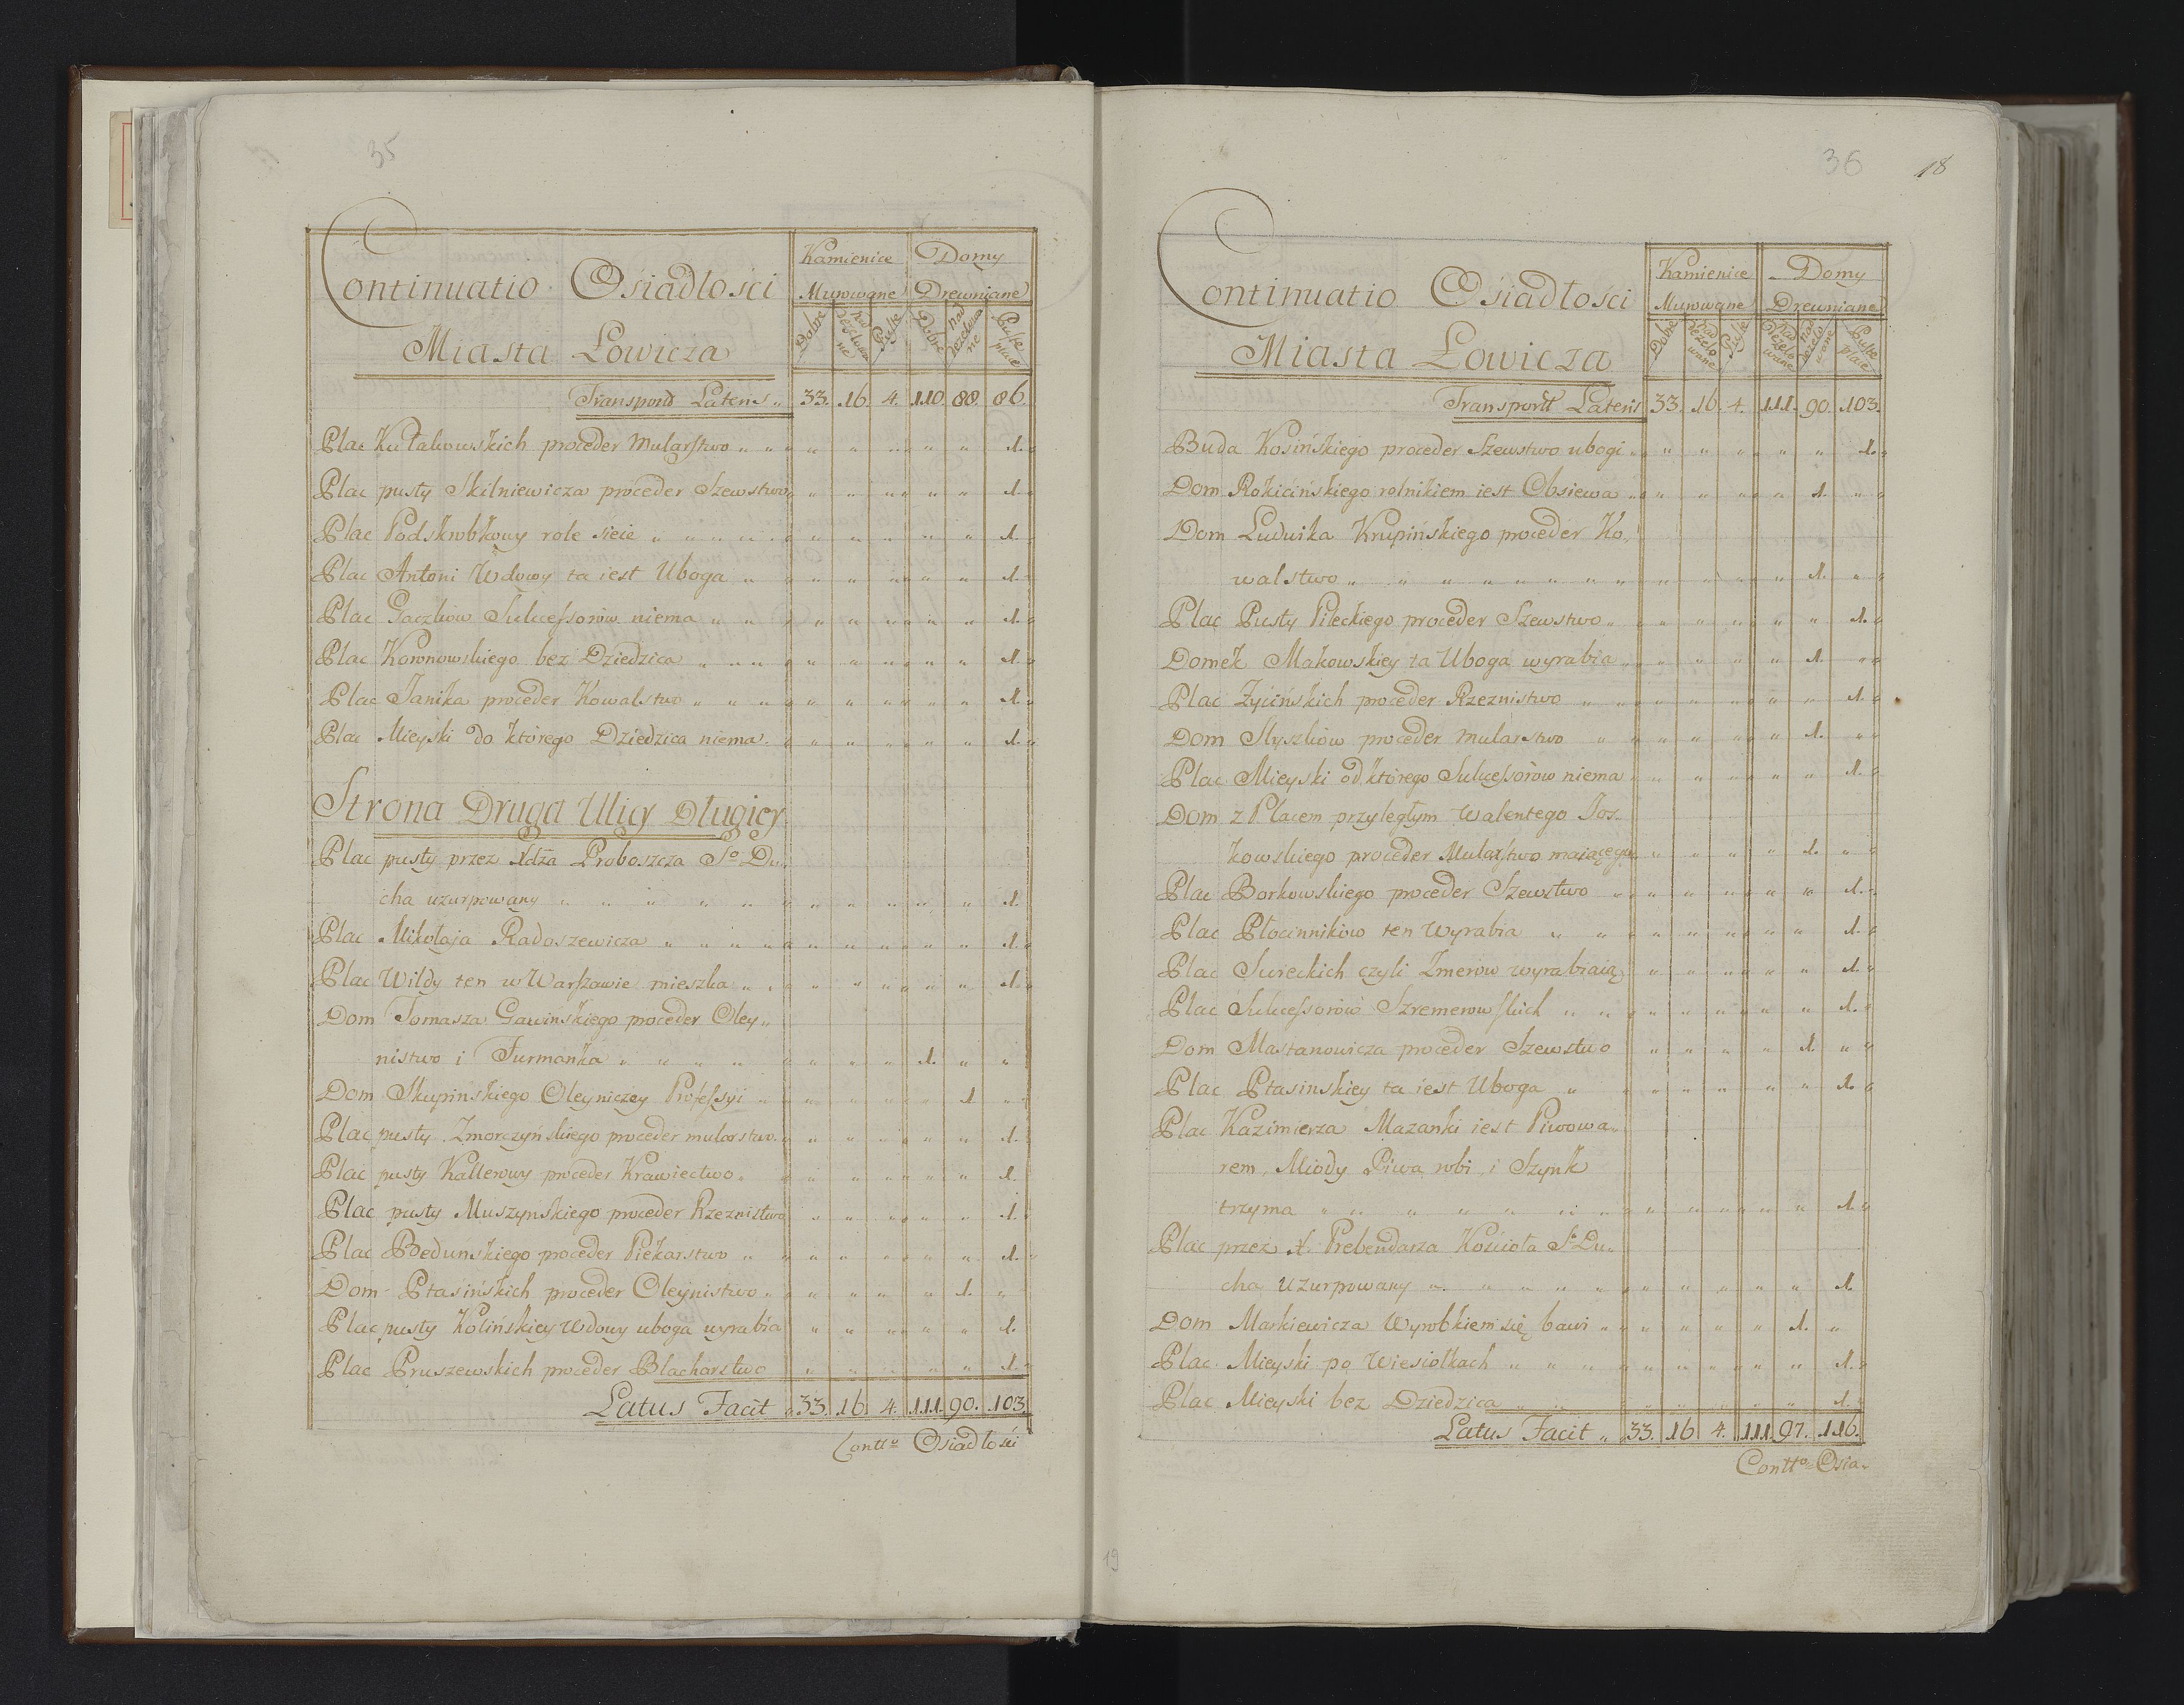 35
Continuatio Osiadłości
Miasta Łowicza
Kamienice Murowane
Domy Drewniane
Dobre
naddezelowane
Puste
Dobre
nadezelowane
Puste place
Transport Lateris „ 33. 16. 4. 110. 88. 86.
Plac Kułakowskich proceder Mularstwo 1.
Plac pusty Skilniewicza proceder Szewstwo 1.
Plac Podskrobkowy role sieie 1.
Plac Antoni Wdowy ta iest Uboga 1.
Plac Gaczków Sukcessorów niema 1.
Plac Kownowskiego bez Dziedzica 1.
Plac Janika proceder Kowalstwo 1.
Plac Mieyski do którego Dziedzica niema 1.
Strona Druga Ulicy Długiey
Plac pusty przez Xdza Proboszcza So Du„
cha uzurpowany 1.
Plac Mikołaja Radoszewicza 1.
Plac Wildy ten w Warszawie mieszka 1.
Dom Tomasza Gawinskiego proceder Oley„
nistwo i Furmanka 1.
Dom Skupinskiego Oleyniczey Professyi 1
Plac pusty Zmorczyńskiego proceder mularstwo 1.
Plac pusty Kallerowy proceder Krawiectwo 1.
Plac pusty Muszynskiego proceder Rzeznistwo 1.
Plac Bedunskiego proceder Piekarstwo 1.
Dom Ptasińskich proceder Oleynistwo 1.
Plac pusty Kolińskiey Wdowy uboga wyrabia 1.
Plac Pruszewskich proceder Blacharstwo 1.
Latus Facit 33. 16. 4. 111. 90. 103.
Contto Osiadłości
36 18
Continuatio Osiadłości
Miasta Łowicza
Kamienice Murowane
Domy Drewniane
Dobre
naddezelowane
Puste
naddezelowane
nadezelowane
Puste place
Transportt Lateris 33. 16. 4. 111. 90. 103.
Buda Kosińskiego proceder Szewstwo ubogi 1.
Dom Rokicińskiego rolnikiem iest Obsiewa 1.
Dom Ludwika Krupińskiego proceder Ko„
walstwo 1.
Plac Pusty Pileckiego proceder Szewstwo 1.
Domek Makowskiey ta Uboga wyrabia 1.
Plac Życińskich proceder Rzeznistwo 1.
Dom Słyszków proceder mularstwo 1.
Plac Mieyski od którego Sukcessorów niema 1.
Dom z Placem przyległym Walentego Jos„
kowskiego proceder Mularstwo maiącego 1.
Plac Borkowskiego proceder Szewstwo 1.
Plac Płocinników ten Wyrabia 1.
Plac Sureckich czyli Zmerów wyrabiaią 1.
Plac Sukcessorów Szremerowskich 1.
Dom Mastanowicza proceder Szewstwo 1.
Plac Ptasinskiey ta iest Uboga 1.
Plac Kazimierza Mazanki iest Piwowa„
rem, Miody Piwa robi i Szynk
trzyma 1.
Plac przez X. Prebendarza Kościoła So Du„
cha Uzurpowany 1.
Dom Markiewicza Wyrobkiem się bawi 1.
Plac Mieyski po Wiesiołkach 1.
Plac Mieyski bez Dziedzica 1.
Latus Facit „ 33. 16 4. 111. 97. 116.
Contto Osia„
19